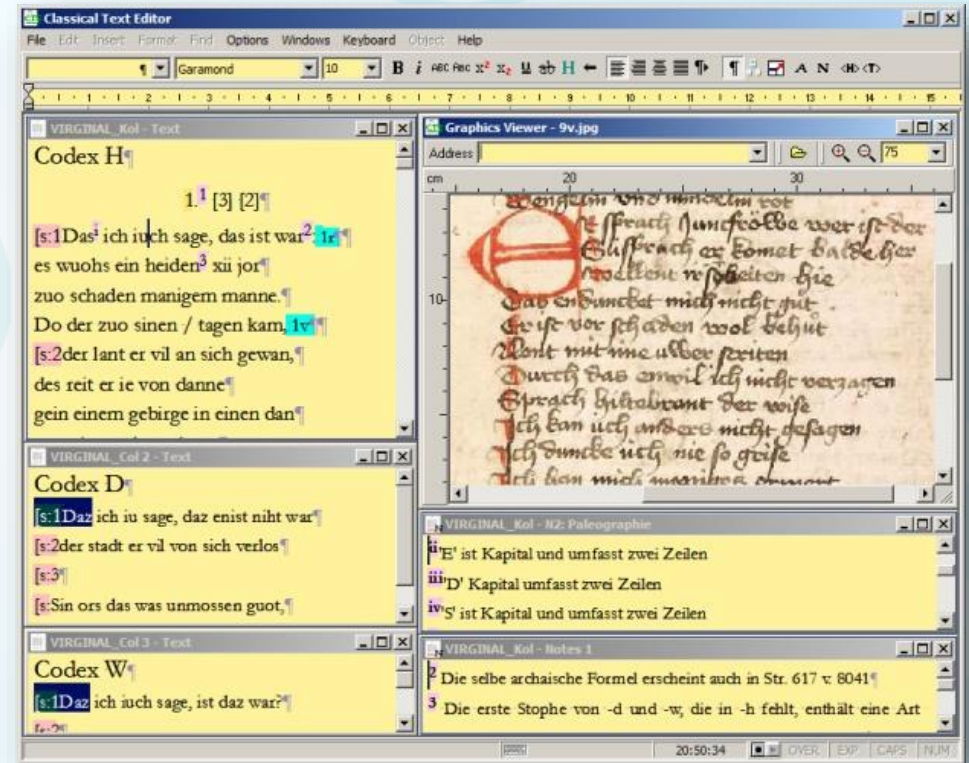 Classical Text Editor
File Edit Insert Format Find Options Windows Keyboard Object Help
¶ Garamond 10 B i ABC ABC x² x₂ U ab H ¶ ¶ A N ‹H› ‹T›
1 2 3 4 5 6 7 8 9 10 11 12 13 14 15
VIRGINAL_Kol - Text
Codex H¶
1.¹ [3] {2]¶
[s:1Dasⁱ ich iuch sage, das ist war²: 1r¶
es wuohs ein heiden³ xii jor¶
zuo schaden manigem manne.¶
Do der zuo sinen / tagen kam, 1v¶
[s:2der lant er vil an sich gewan,¶
des reit er ie von danne¶
gein einem gebirge in einen dan¶
VIRGINAL_Col 2 - Text
Codex D¶
[s:1Daz ich iu sage, daz enist niht war¶
[s:2der stadt er vil von sich verlos¶
[s:3¶
[s:Sin ors das was unmossen guot,¶
VIRGINAL_Col 3 - Text
Codex W¶
[s:1Daz ich iuch sage, ist daz war?¶
[s:2¶
Graphics Viewer - 9v.jpg
Address 75
cm 20 30
10
sprach Juncfrölbe wer ist der
sprach er komet balde her
hie
Daz enduncket mich nicht gut
Er ist vor schaden wol behut
Durch das ich nicht verzagen
Sprach hiltebrant der wise
Ich kan uch anders nicht gesagen
Ich duncke uch nie so grise
VIRGINAL_Kol - N2: Paleographie
ii'E' ist Kapital und umfasst zwei Zeilen
iii'D' Kapital umfasst zwei Zeilen
iv'S' ist Kapital und umfasst zwei Zeilen
VIRGINAL_Kol - Notes 1
2 Die selbe archaische Formel erscheint auch in Str. 617 v. 8041¶
3 Die erste Stophe von -d und -w, die in -h fehlt, enthält eine Art
20:50:34 OVER EXP CAPS NUM